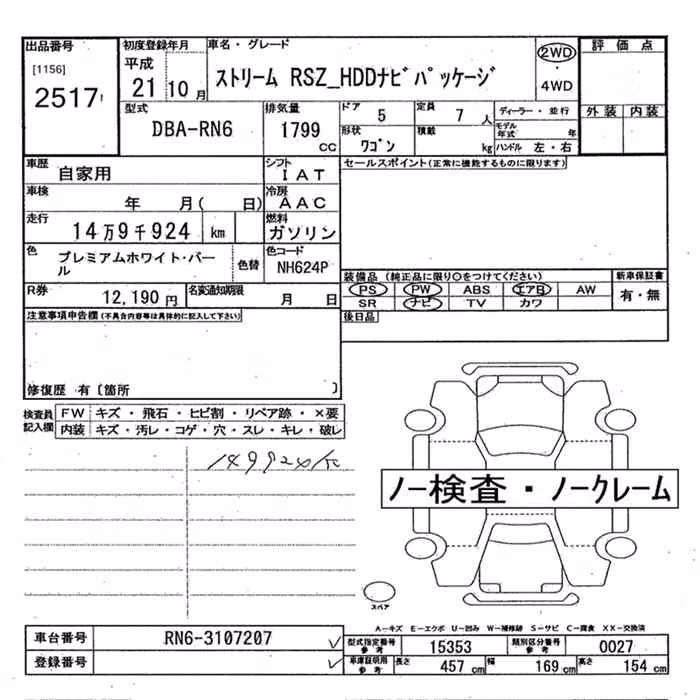 出品番号
[1156]
2517
初度登録年月
平成
21 10 月
車名・グレード
ストリーム RSZ_HDDナビパッケージ
2WD
・
4WD
評価点
外装 内装
型式
DBA-RN6
排気量
1799
CC
ドア
5
定員
7 人
形状
ワゴン
積載
kg
ディーラー・並行
モデル年式 年
ハンドル 左・右
車歴
自家用
シフト
IAT
セールスポイント(正常に機能するものに限ります)
車検
年 月( 日)
冷房
AAC
走行
14万9千924 km
燃料
ガソリン
色
プレミアムホワイト・パール
色替
色コード
NH624P
装備品 (純正品に限り〇をつけてください)
PS PW ABS エアB AW
SR ナビ TV カワ
新車保証書
有・無
R券
12,190 円
名変通知期限
月 日
後日品
注意事項申告欄(不具合内容等は具体的に記入して下さい)
修復歴 有〔箇所 〕
検査員記入欄
FW キズ・飛石・ヒビ割・リペア跡・×要
内装 キズ・汚レ・コゲ・穴・スレ・キレ・破レ
149924
ノー検査・ノークレーム
スペア
A-キズ E-エクボ U-凹み W-補修跡 S-サビ C-腐食 XX-交換済
車台番号
RN6-3107207
登録番号
型式指定番号
参考
15353
類別区分番号
参考
0027
車庫証明用
参考
長さ
457 cm
幅
169 cm
高さ
154 cm